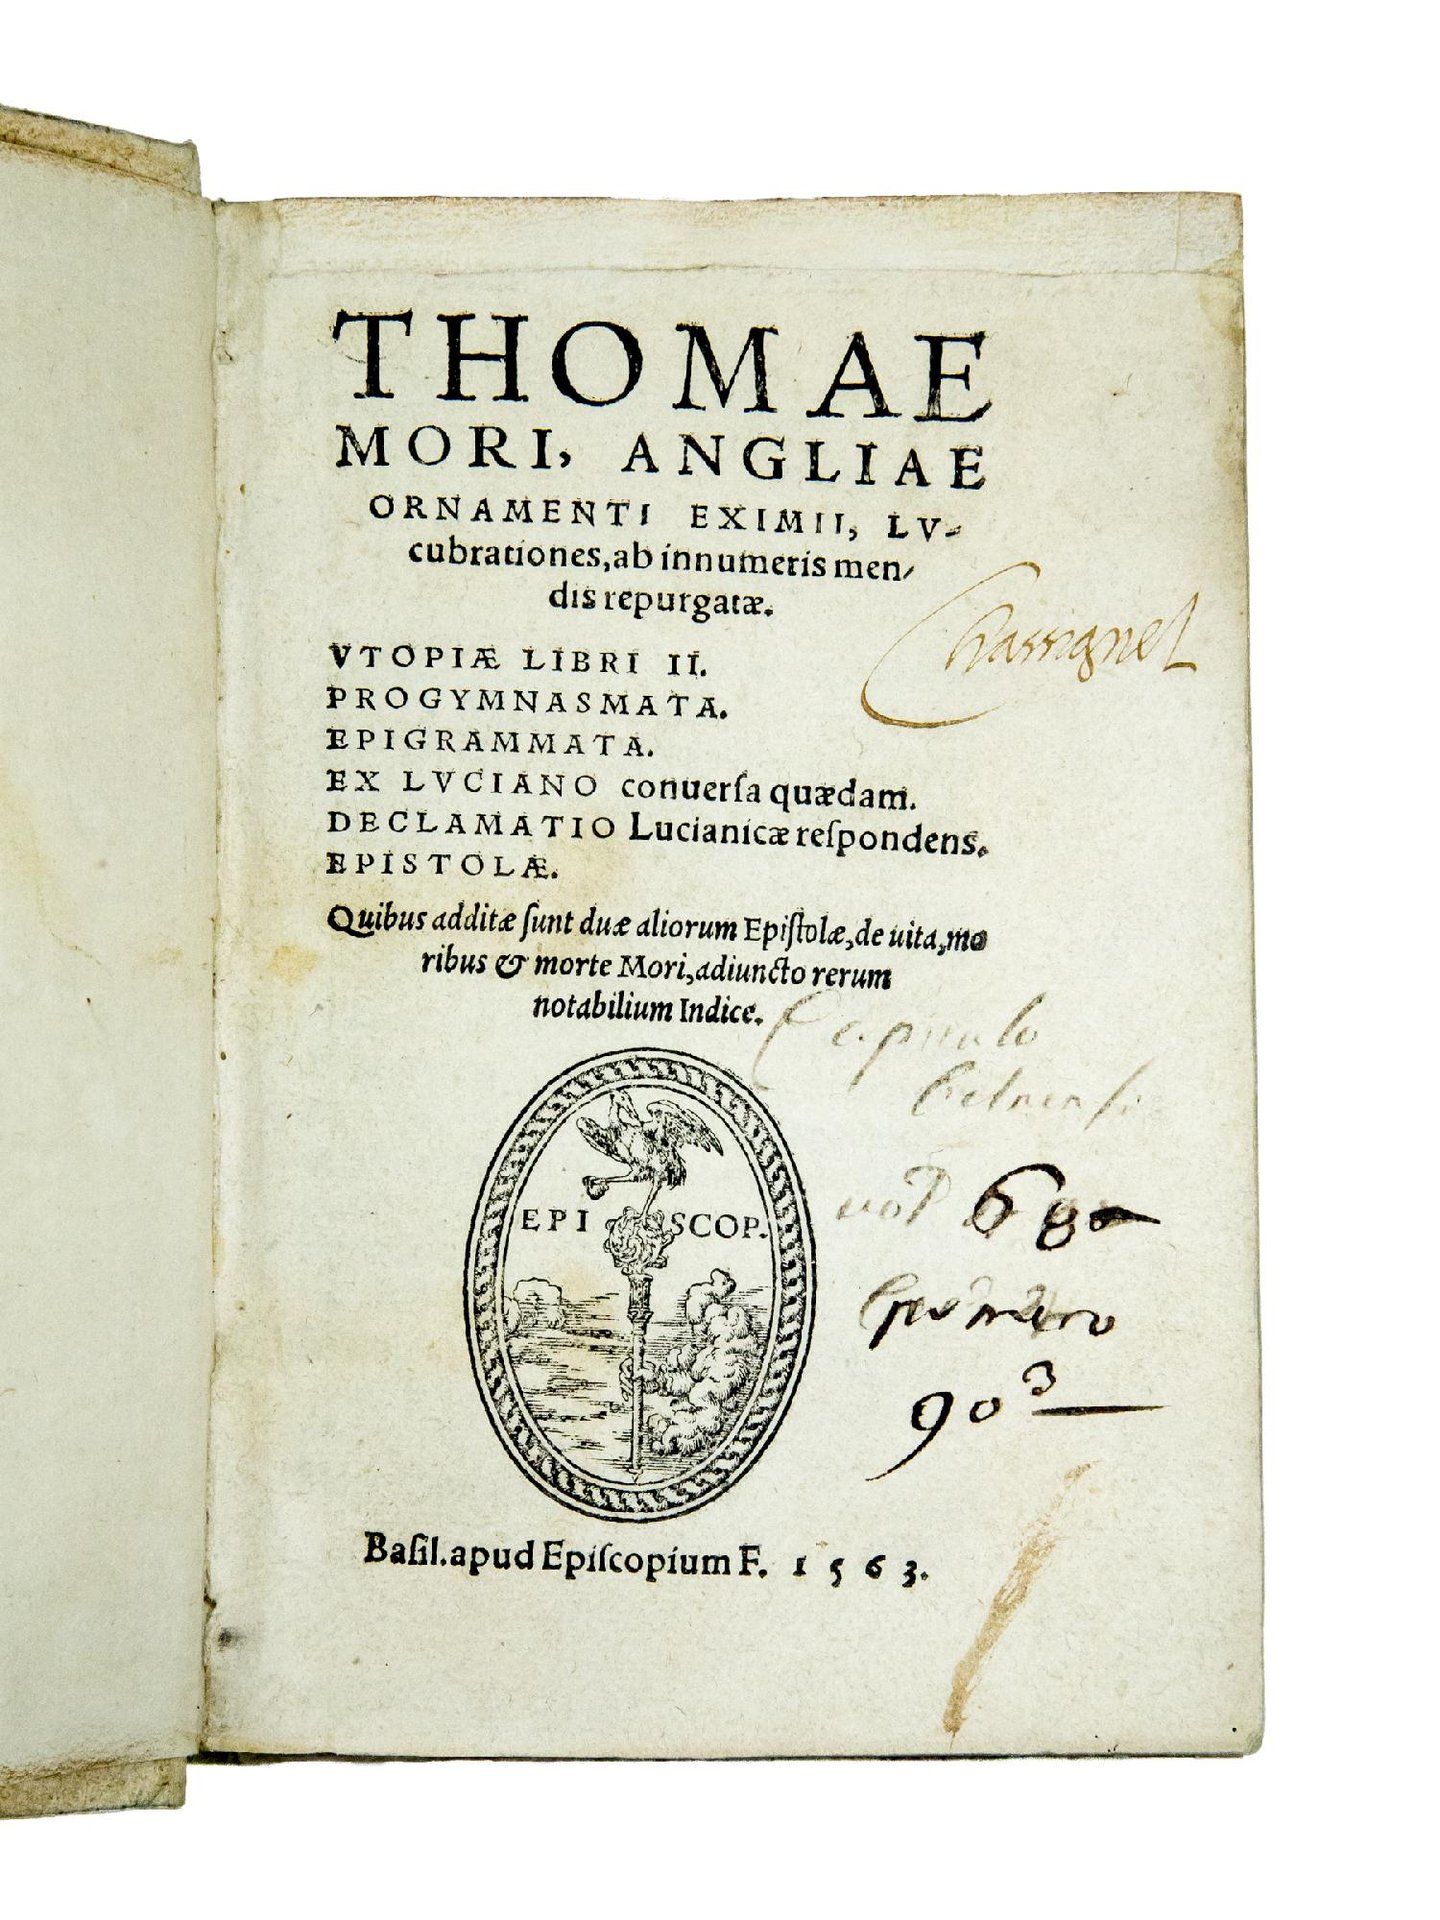 THOMAE
MORI, ANGLIAE
ORNAMENTI EXIMII, LV-
cubrationes, ab innumeris men-
dis repurgatæ.
VTOPIÆ LIBRI II.
PROGYMNASMATA.
EPIGRAMMATA.
EX LVCIANO conuerſa quædam.
DECLAMATIO Lucianicæ reſpondens.
EPISTOLÆ.
Chassignet
Quibus additæ ſunt duæ aliorum Epiſtolæ, de uita, mo
ribus & morte Mori, adiuncto rerum
notabilium Indice.
Capitulo
EPI SCOP.
68
90 3
Baſil. apud Epiſcopium F. 1563.